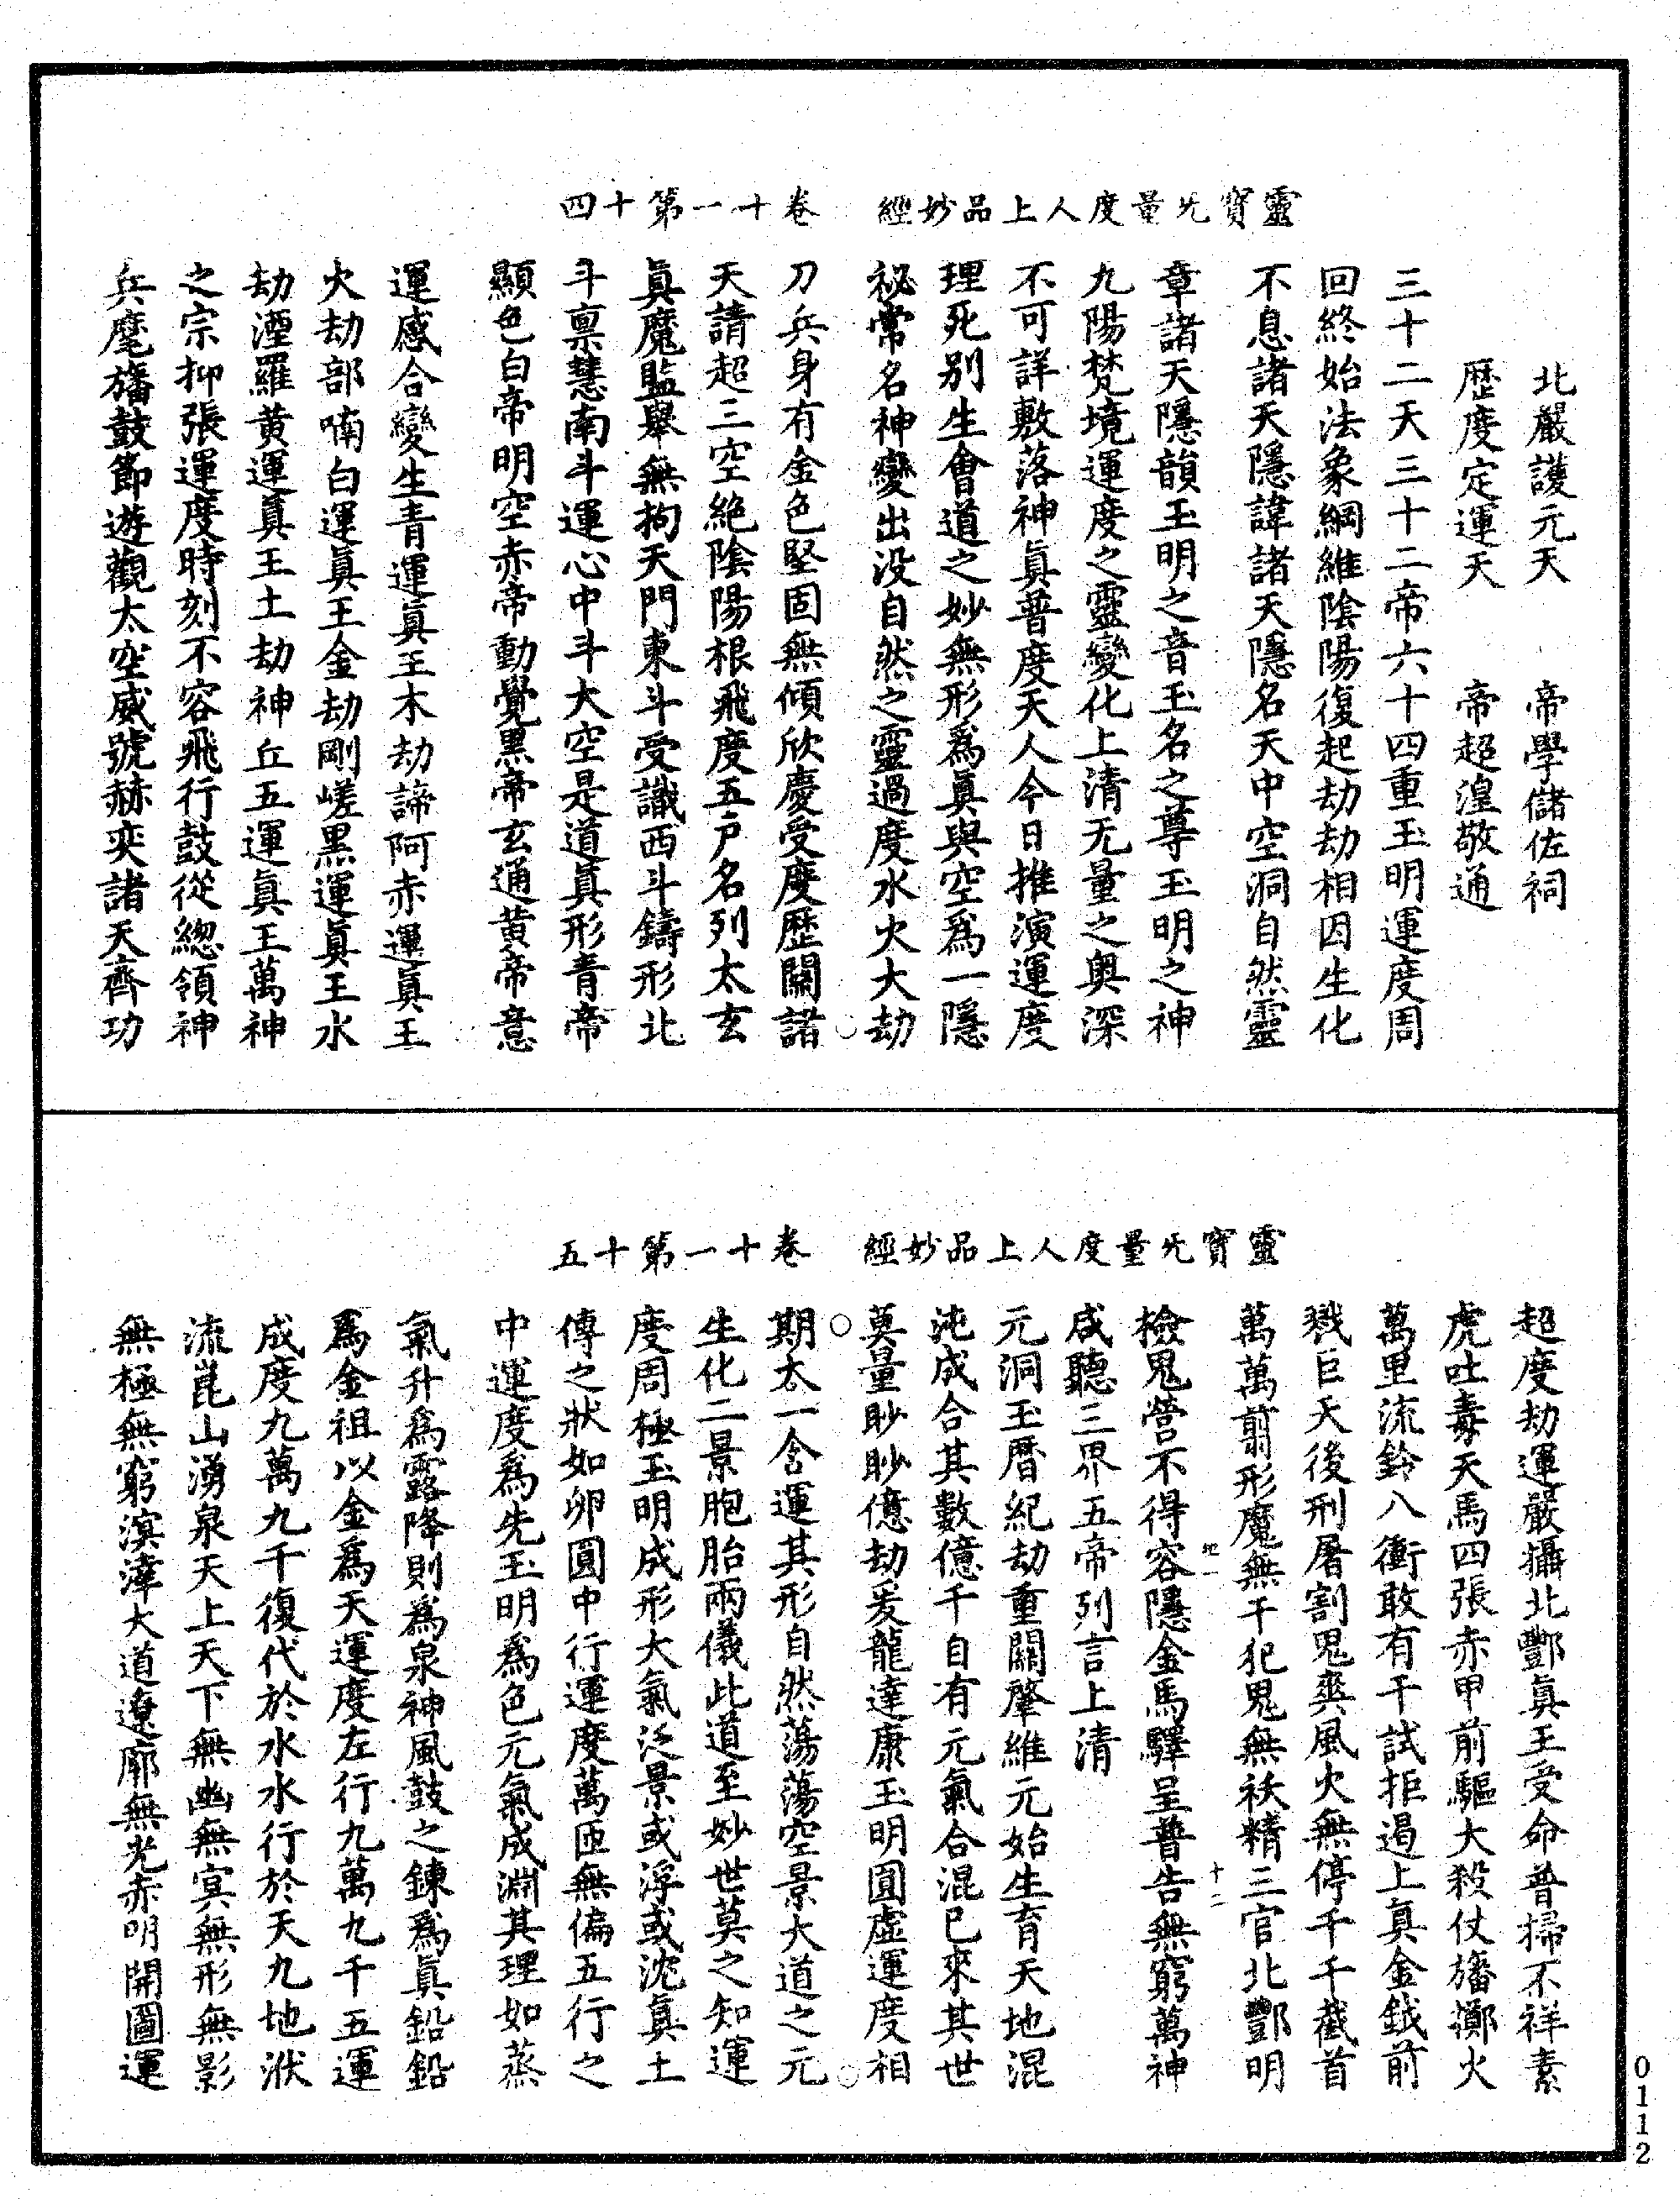 靈寶无量度人上品妙經　卷十一第十四
北嚴護元天　帝學儲佐祠
歷度定運天　帝超湟敬通
三十二天三十二帝六十四重玉明運度周
回終始法象綱維陰陽復起劫劫相因生化
不息諸天隱諱諸天隱名天中空洞自然靈
章諸天隱韻玉明之音玉名之尊玉明之神
九陽梵境運度之靈變化上清无量之奧深
不可詳敷落神真普度天人今日推演運度
理死別生會道之妙無形爲真與空爲一隱
祕常名神變出没自然之靈過度水火大劫
刀兵身有金色堅固無傾欣慶受度歷關諸
天請超三空絶陰陽根飛度五户名列太玄
真魔監舉無拘天門東斗受識西斗鑄形北
斗禀慧南斗運心中斗大空是道真形青帝
顯色白帝明空赤帝動覺黑帝玄通黄帝意
運感合變生青運真王木劫諦阿赤運真王
火劫部喃白運真王金劫剛嵯黑運真王水
劫湮羅黄運真王土劫神丘五運真王萬神
之宗抑張運度時刻不容飛行鼓從總領神
兵麾旛鼓節遊觀太空威號赫奕諸天齊功
靈寶无量度人上品妙經　卷十一第十五
超度劫運嚴攝北酆真王受命普掃不祥素
虎吐毒天馬四張赤甲前驅大殺仗旛擲火
萬里流鈴八衝敢有干試拒遏上真金鉞前
戮巨天後刑屠割鬼爽風火無停千千截首
萬萬剪形魔無干犯鬼無祅精三官北酆明
檢鬼營不得容隱金馬驛呈普告無窮萬神
咸聽三界五帝列言上清
元洞玉曆紀劫重關肇維元始生育天地混
沌成合其數億千自有元氣合混已來其世
莫量眇眇億劫爰龍達康玉明圓虛運度相
期太一含運其形自然蕩蕩空景大道之元
生化二景胞胎兩儀此道至妙世莫之知運
度周極玉明成形大氣泛景或浮或沈真土
傳之狀如卵圓中行運度萬匝無偏五行之
中運度爲先玉明爲色元氣成淵其理如蒸
氣升爲露降則爲泉神風鼓之鍊爲真鉛鉛
爲金祖以金爲天運度左行九萬九千五運
成度九萬九千復代於水水行於天九地洑
流崑山湧泉天上天下無幽無冥無形無影
無極無窮溟涬大道遼廓無光赤明開圖運
地一
十二
0112